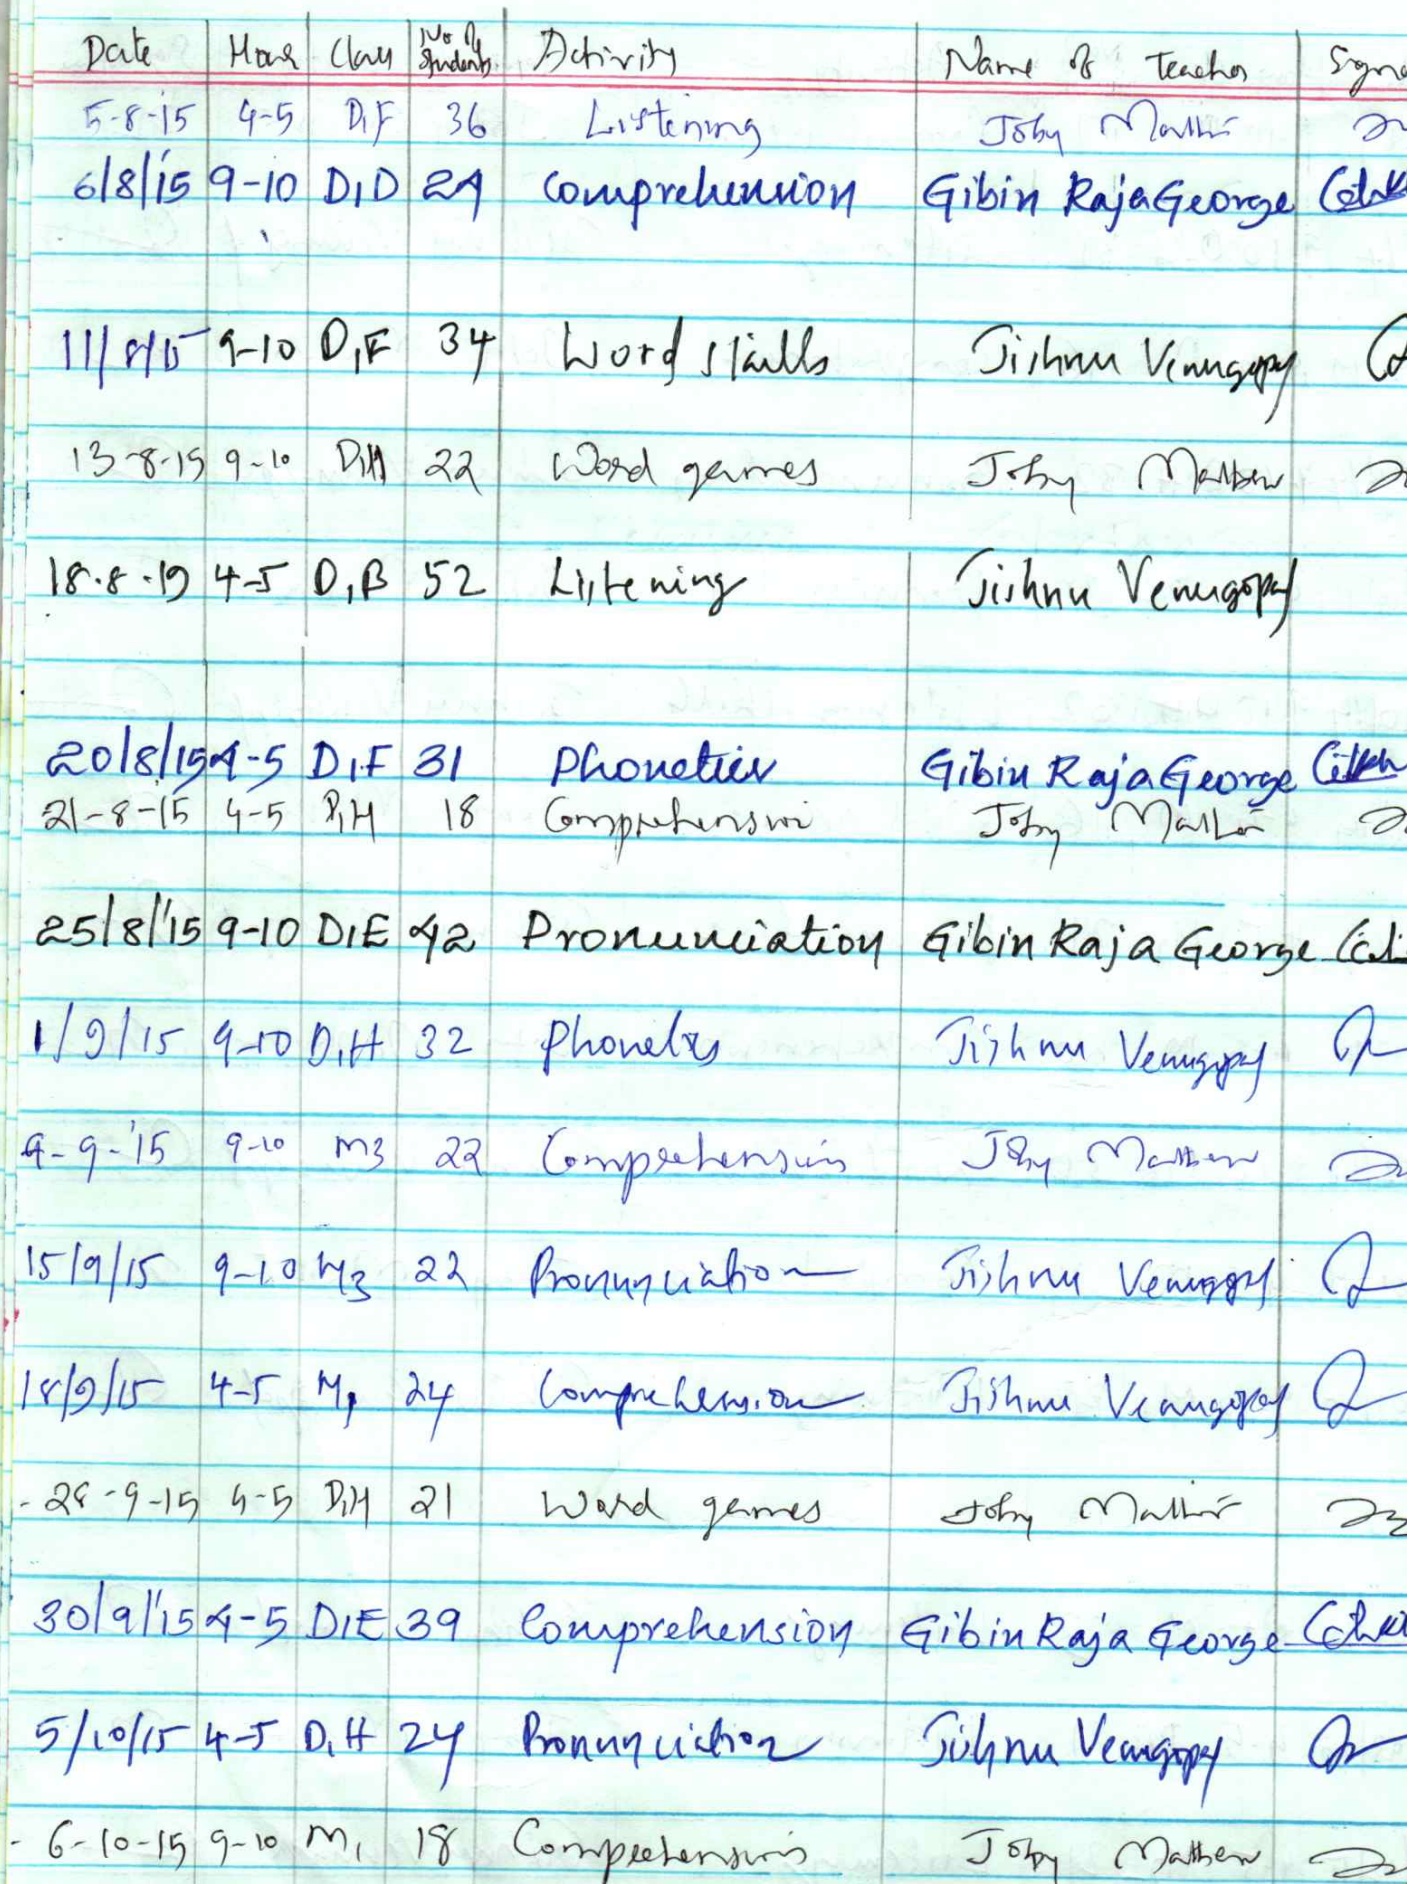 Date Hour Class No of Students Activity Name of Teacher
5-8-15 4-5 D1F 36 Listening Joby Mathew
6/8/15 9-10 D1D 24 Comprehension Gibin Raja George
11/8/15 9-10 D1F 34 Word skills Jishnu Venugopal
13-8-15 9-10 D1H 22 Word games Joby Mathew
18.8.15 4-5 D1B 52 Listening Jishnu Venugopal
20/8/15 4-5 D1F 31 Phonetics Gibin Raja George
21-8-15 4-5 D1H 18 Comprehension Joby Mathew
25/8/15 9-10 D1E 42 Pronunciation Gibin Raja George
1/9/15 9-10 D1H 32 Phonetics Jishnu Venugopal
9-9-'15 9-10 M3 22 Comprehension Joby Mathew
15/9/15 9-10 M3 22 Pronunciation Jishnu Venugopal
18/9/15 4-5 M1 24 Comprehension Jishnu Venugopal
28-9-15 4-5 D1H 21 Word games Joby Mathew
30/9/15 4-5 D1E 39 Comprehension Gibin Raja George
5/10/15 4-5 D1H 24 Pronunciation Jishnu Venugopal
6-10-15 9-10 M1 18 Comprehension Joby Mathew